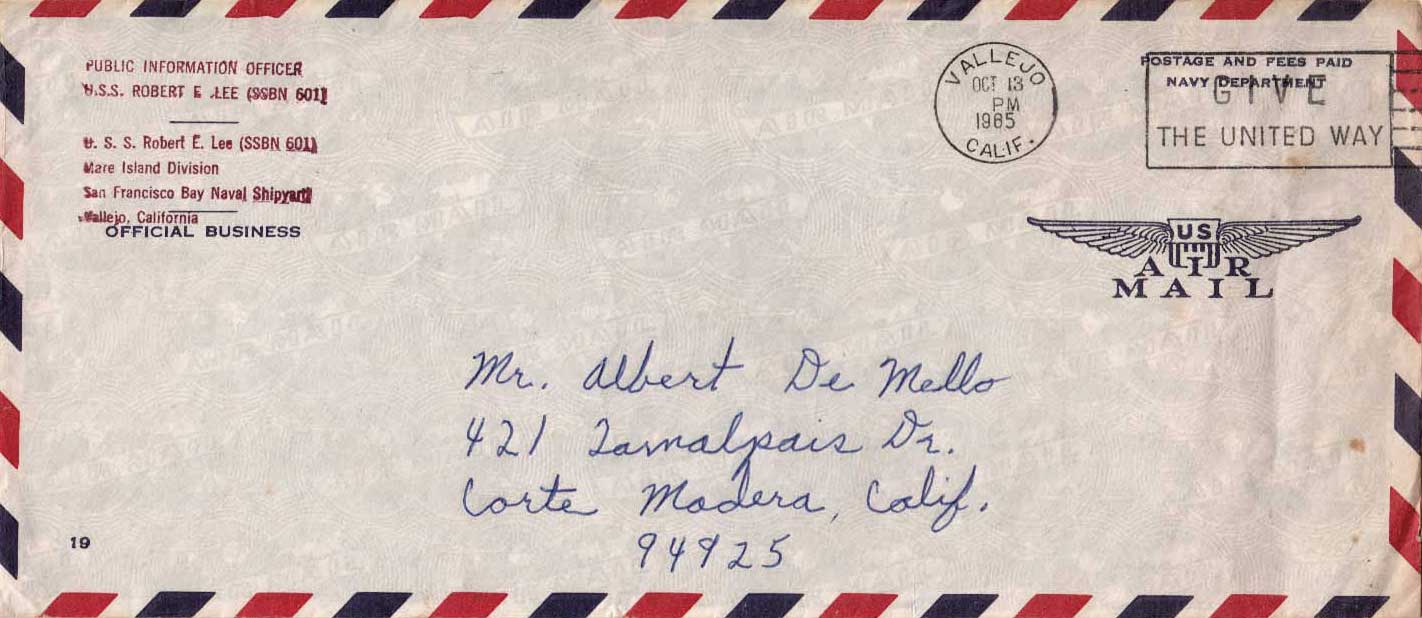 PUBLIC INFORMATION OFFICER
U.S.S. ROBERT E. LEE (SSBN 601)
U. S. S. Robert E. Lee (SSBN 601)
Mare Island Division
San Francisco Bay Naval Shipyard
Vallejo, California
OFFICIAL BUSINESS
VALLEJO
OCT 13
PM
1965
CALIF.
POSTAGE AND FEES PAID
NAVY DEPARTMENT
GIVE
THE UNITED WAY
US
AIR
MAIL
Mr. Albert De Mello
421 Tamalpais Dr.
Corte Madera, Calif.
94925
19